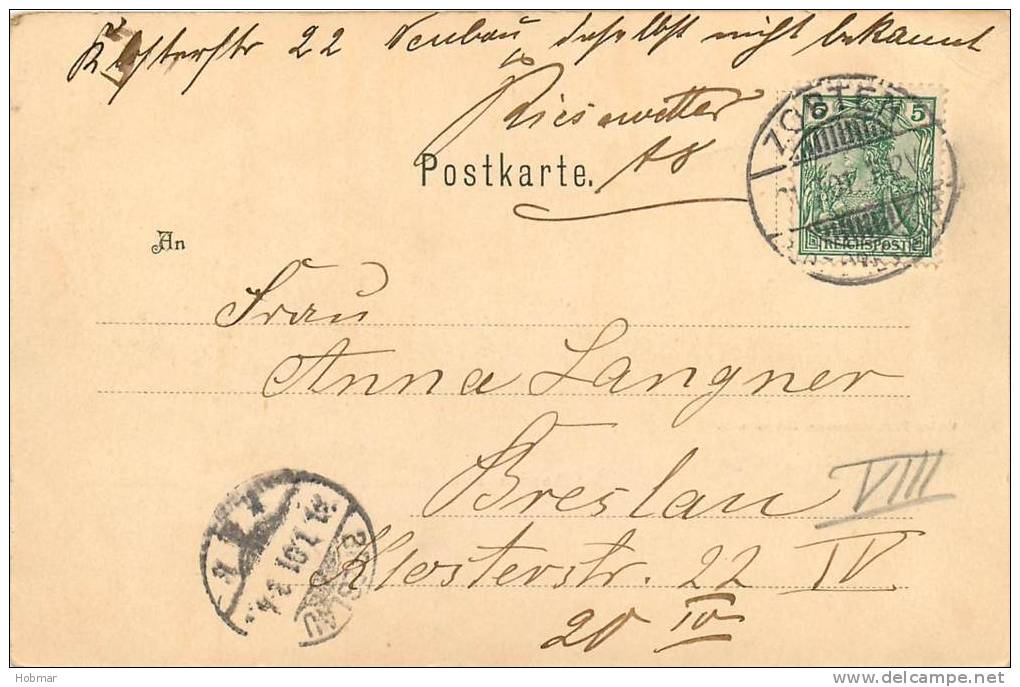 Klosterstr 22 Neubau, daselbst nicht bekannt
Kiesewetter
Postkarte.
ZOBTEN
5 5
REICHSPOST
An
Frau
Anna Langner
Breslau VIII
Klosterstr. 22 IV
20 IV
BRESLAU
Hobmar
delcampe.net